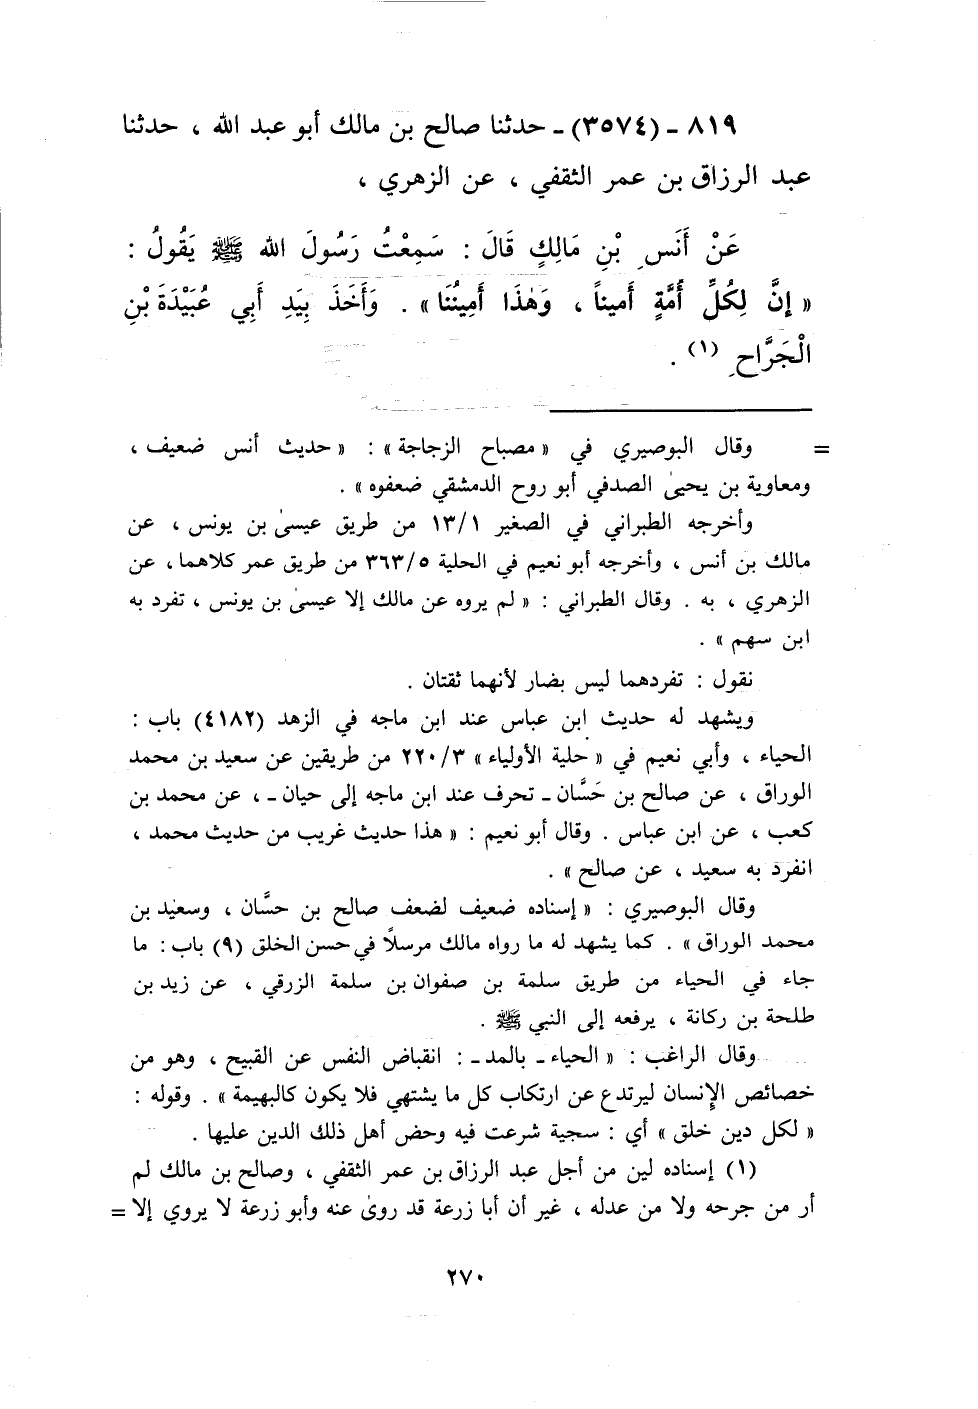 ٨١٩ - (٣٥٧٤) - حدثنا صالح بن مالك أبو عبد الله ، حدثنا
عبد الرزاق بن عمر الثقفي ، عن الزهري ،
عَنْ أَنَسِ بْنِ مَالِكٍ قَالَ : سَمِعْتُ رَسُولَ الله ﷺ يَقُولُ :
« إِنَّ لِكُلِّ أُمَّةٍ أَميناً ، وَهٰذَا أَمِينُنَا » . وَأَخَذَ بِيَدِ أَبِي عُبَيْدَةَ بْنِ
الْجَرَّاحِ (١) .
= وقال البوصيري في « مصباح الزجاجة » : « حديث أنس ضعيف ،
ومعاوية بن يحيىٰ الصدفي أبو روح الدمشقي ضعفوه » .
وأخرجه الطبراني في الصغير ١٣/١ من طريق عيسىٰ بن يونس ، عن
مالك بن أنس ، وأخرجه أبو نعيم في الحلية ٣٦٣/٥ من طريق عمر كلاهما ، عن
الزهري ، به . وقال الطبراني : « لم يروه عن مالك إلا عيسىٰ بن يونس ، تفرد به
ابن سهم » .
نقول : تفردهما ليس بضار لأنهما ثقتان .
ويشهد له حديث ابن عباس عند ابن ماجه في الزهد (٤١٨٢) باب :
الحياء ، وأبي نعيم في « حلية الأولياء » ٢٢٠/٣ من طريقين عن سعيد بن محمد
الوراق ، عن صالح بن حَسَّان - تحرف عند ابن ماجه إلى حيان - ، عن محمد بن
كعب ، عن ابن عباس . وقال أبو نعيم : « هذا حديث غريب من حديث محمد ،
انفرد به سعيد ، عن صالح » .
وقال البوصيري : « إسناده ضعيف لضعف صالح بن حسَّان ، وسعيد بن
محمد الوراق » . كما يشهد له ما رواه مالك مرسلاً في حسن الخلق (٩) باب : ما
جاء في الحياء من طريق سلمة بن صفوان بن سلمة الزرقي ، عن زيد بن
طلحة بن ركانة ، يرفعه إلى النبي ﷺ .
وقال الراغب : « الحياء - بالمد - : انقباض النفس عن القبيح ، وهو من
خصائص الإِنسان ليرتدع عن ارتكاب كل ما يشتهي فلا يكون كالبهيمة » . وقوله :
« لكل دين خلق » أي : سجية شرعت فيه وحض أهل ذلك الدين عليها .
(١) إسناده لين من أجل عبد الرزاق بن عمر الثقفي ، وصالح بن مالك لم
أر من جرحه ولا من عدله ، غير أن أبا زرعة قد روىٰ عنه وأبو زرعة لا يروي إلا =
٢٧٠